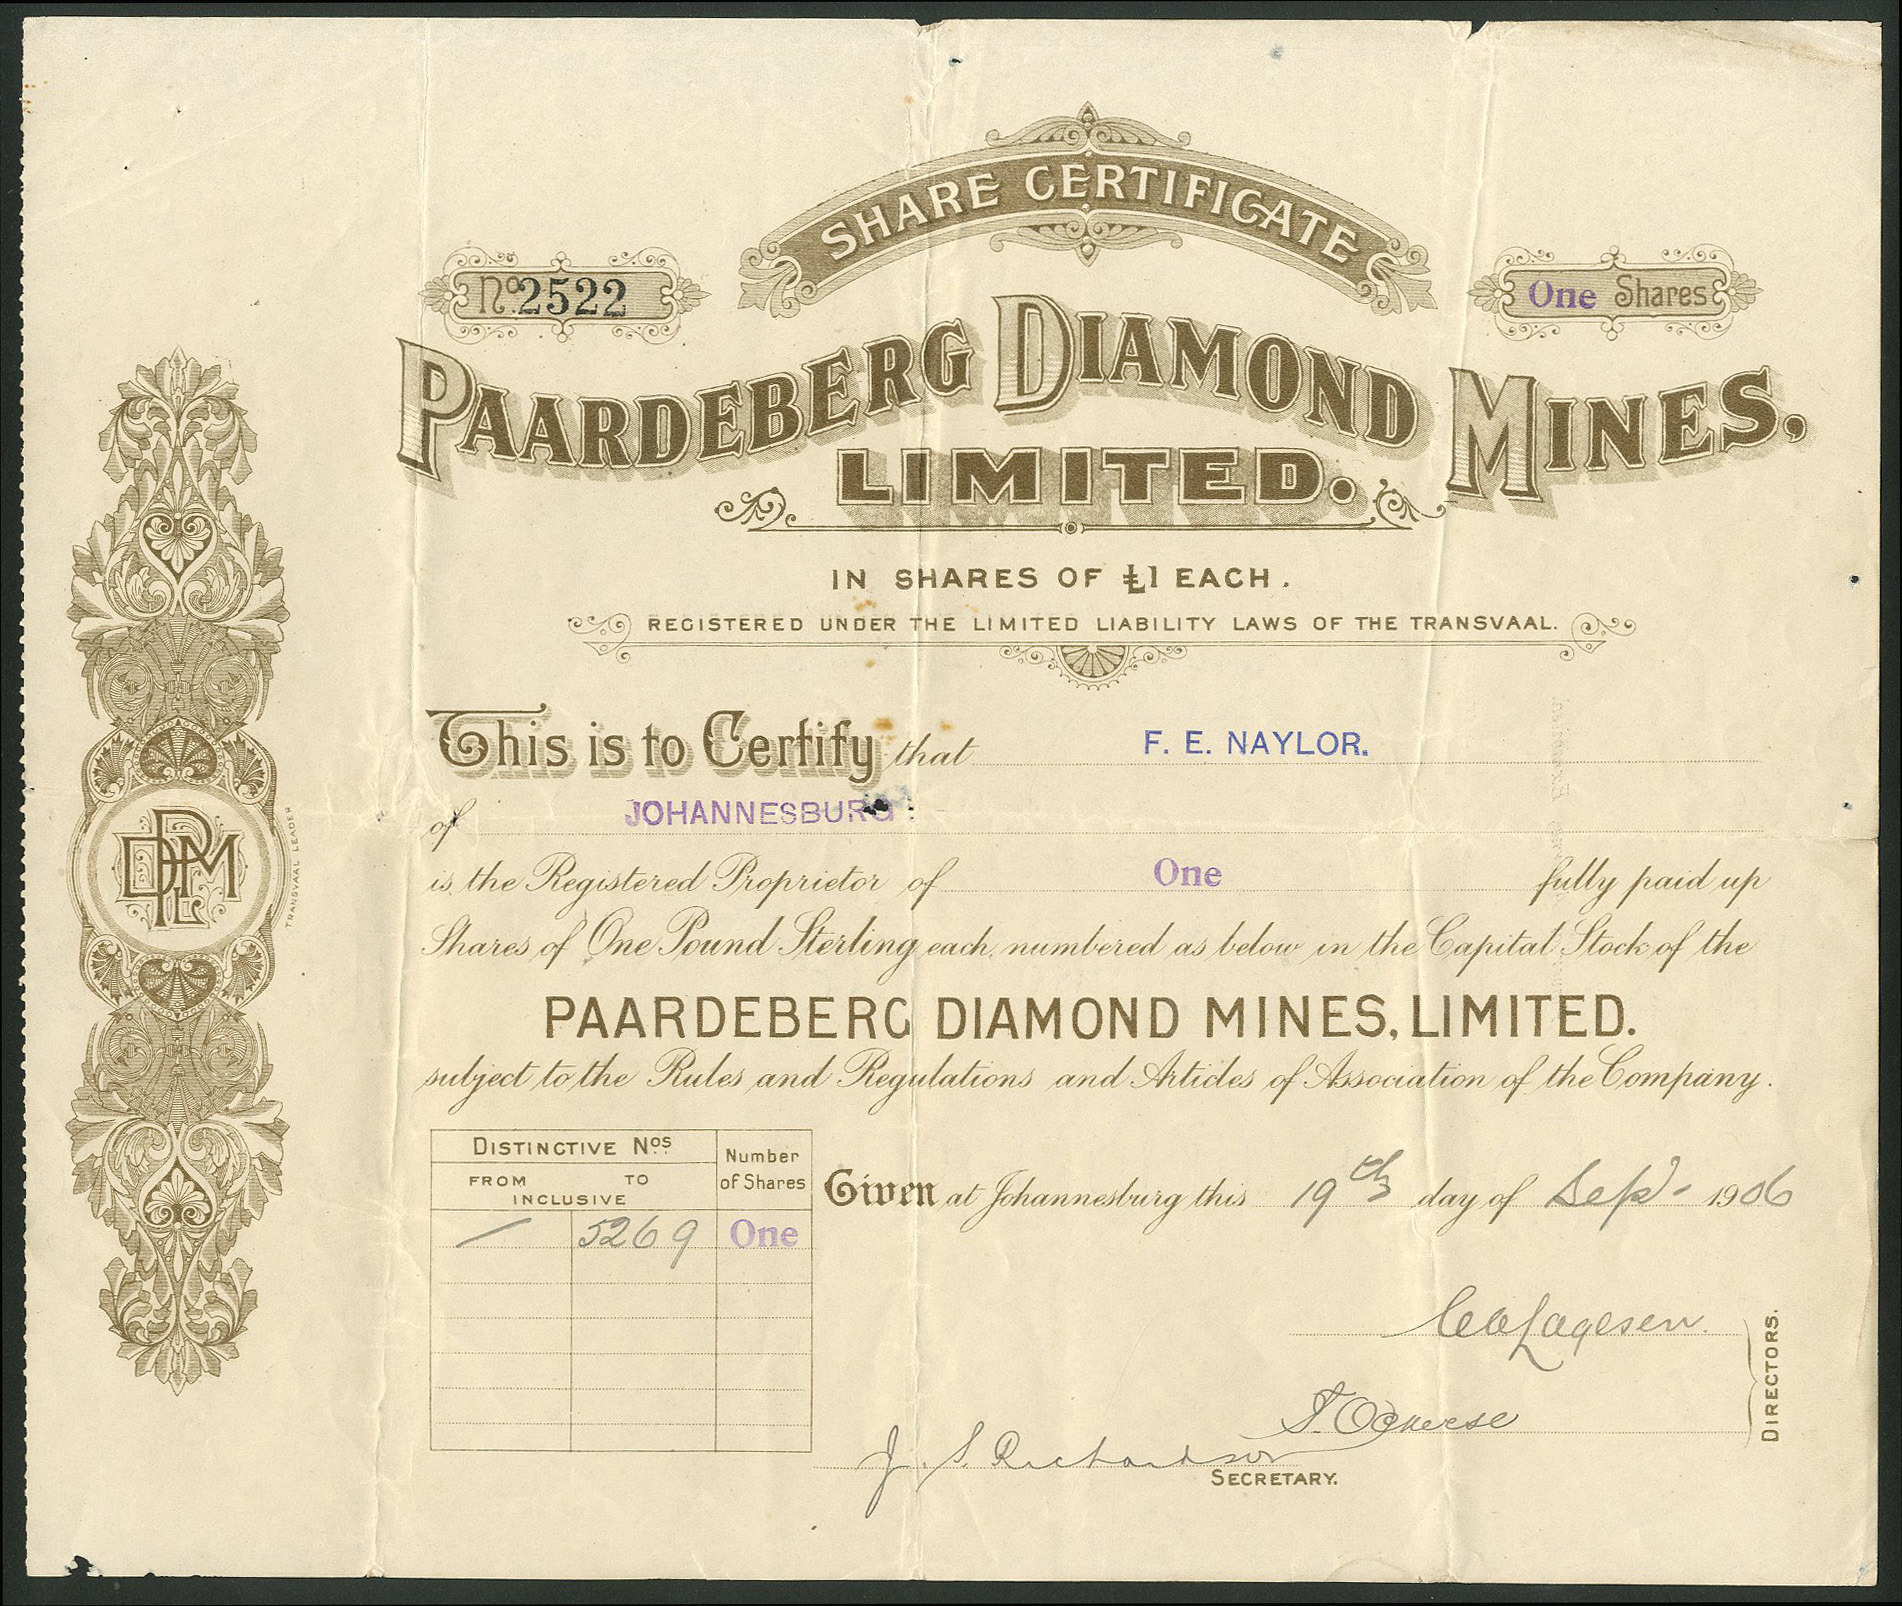 SHARE CERTIFICATE
No. 2522
One Shares
PAARDEBERG DIAMOND MINES,
LIMITED.
IN SHARES OF £1 EACH.
REGISTERED UNDER THE LIMITED LIABILITY LAWS OF THE TRANSVAAL.
This is to Certify that F. E. NAYLOR.
of JOHANNESBURG
is the Registered Proprietor of One fully paid up
Shares of One Pound Sterling each, numbered as below in the Capital Stock of the
PAARDEBERG DIAMOND MINES, LIMITED.
subject to the Rules and Regulations and Articles of Association of the Company.
DISTINCTIVE Nos.
FROM TO
INCLUSIVE
Number
of Shares
— 5269 One
Given at Johannesburg this 19th day of Sept 1906
DIRECTORS.
J. S. Richardson
SECRETARY.
DPML
TRANSVAAL LEADER